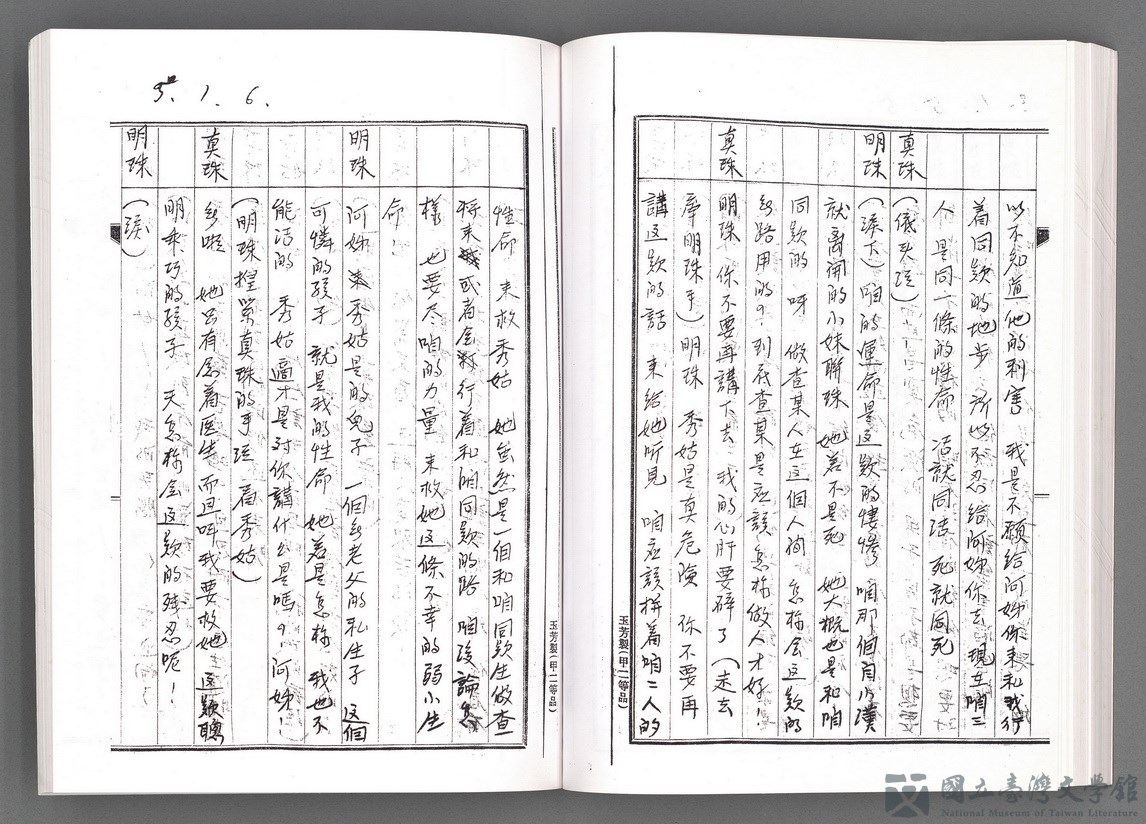 以不知道他的利害 我是不願給阿姊你来和我行
着同款的地步 所以不忍給阿姊你去 現在咱三
人 是同一條的性命 活就同活 死就同死
真珠 (低头泣)
明珠 (淚下) 咱的運命是這款的悽慘 咱那個自小漢
就离開的小妹聯珠 她若不是死 她大概也是和咱
同款的 呀 做查某人在這個人间 怎樣会這款的
無路用的?到底查某是应該怎樣做人才好!
真珠 明珠 你不要再講下去 我的心肝要碎了 (走去
牵明珠手) 明珠 秀姑是真危險 你不要再
講這款的話 来給她听見 咱应該拼着咱二人的
玉芳製(甲二等品)
5.1.6.
性命 来救秀姑 她虽然是一個和咱同款生做查
将来或者会行着和咱同款的路 咱論怎
樣 也要尽咱的力量 来救她這條不幸的弱小生
命!
明珠 阿姊 秀姑是我的兒子 一個無老父的私生子 這個
可憐的孩子 就是我的性命 她若是怎樣 我也不
能活的 秀姑適才是对你講什么是嗎?阿姊!
(明珠握緊真珠的手泣 看秀姑)
真珠 無啦 她只有念着医生 而且叫我要救她 這款聰
明乖巧的孩子 天怎樣会這款的残忍呢!
明珠 (淚)
玉芳製(甲二等品)
國立臺灣文學館
National Museum of Taiwan Literature